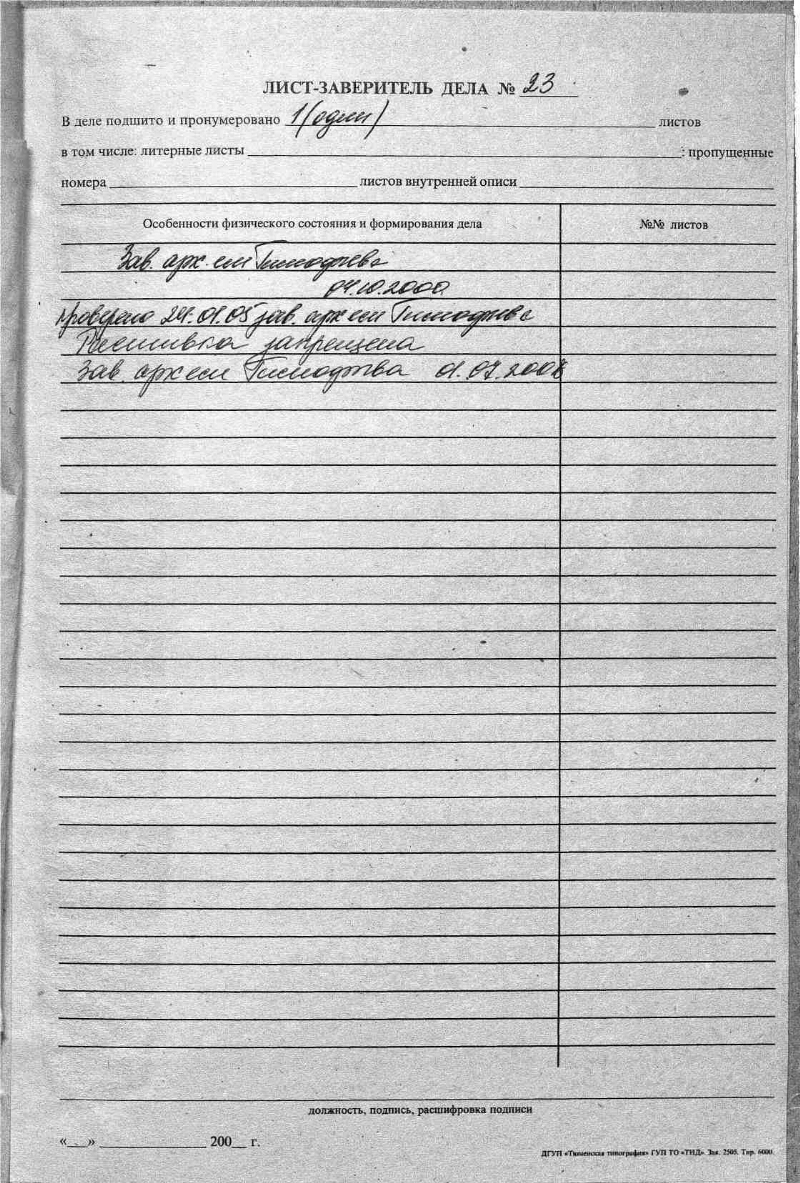 ЛИСТ-ЗАВЕРИТЕЛЬ ДЕЛА № 23
В деле подшито и пронумеровано 1 (один) листов
в том числе: литерные листы ; пропущенные
номера листов внутренней описи
Особенности физического состояния и формирования дела №№ листов
Зав. арх.
04.10.2000
проверено 24.01.05 зав. арх
Расшивка запрещена
Зав. арх 01.07.200
должность, подпись, расшифровка подписи
«__» 200__ г.
ДГУП «Тюменская типография» ГУП ТО «ТИД». Зак. 2505. Тир. 6000.